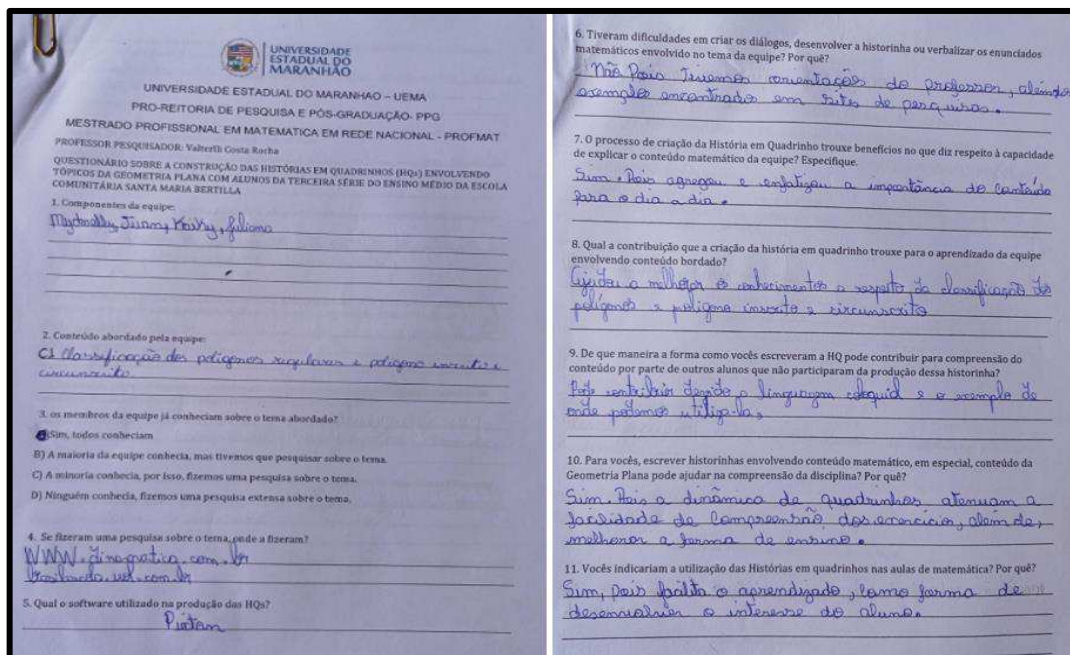 UNIVERSIDADE
ESTADUAL DO
MARANHÃO
UNIVERSIDADE ESTADUAL DO MARANHAO – UEMA
PRO-REITORIA DE PESQUISA E PÓS-GRADUAÇÃO- PPG
MESTRADO PROFISSIONAL EM MATEMATICA EM REDE NACIONAL - PROFMAT
PROFESSOR PESQUISADOR: Valterli Costa Rocha
QUESTIONÁRIO SOBRE A CONSTRUÇÃO DAS HISTÓRIAS EM QUADRINHOS (HQs) ENVOLVENDO
TÓPICOS DA GEOMETRIA PLANA COM ALUNOS DA TERCEIRA SÉRIE DO ENSINO MÉDIO DA ESCOLA
COMUNITÁRIA SANTA MARIA BERTILLA
1. Componentes da equipe:
Juliana
2. Conteúdo abordado pela equipe:
Classificação dos polígonos regulares e polígono inscrito e
circunscrito
3. os membros da equipe já conheciam sobre o tema abordado?
Sim, todos conheciam
B) A maioria da equipe conhecia, mas tivemos que pesquisar sobre o tema.
C) A minoria conhecia, por isso, fizemos uma pesquisa sobre o tema.
D) Ninguém conhecia, fizemos uma pesquisa extensa sobre o tema.
4. Se fizeram uma pesquisa sobre o tema, onde a fizeram?
5. Qual o software utilizado na produção das HQs?
6. Tiveram dificuldades em criar os diálogos, desenvolver a historinha ou verbalizar os enunciados
matemáticos envolvido no tema da equipe? Por quê?
Não Pois Tivemos do professor, além de
exemplos encontrados em sites de pesquisas.
7. O processo de criação da História em Quadrinho trouxe benefícios no que diz respeito à capacidade
de explicar o conteúdo matemático da equipe? Especifique.
Sim. Pois agregou e enfatizou a importância do Conteúdo
para o dia a dia.
8. Qual a contribuição que a criação da história em quadrinho trouxe para o aprendizado da equipe
envolvendo conteúdo bordado?
Ajudou a melhorar os conhecimentos a respeito da classificação dos
polígonos e polígono inscrito e circunscrito
9. De que maneira a forma como vocês escreveram a HQ pode contribuir para compreensão do
conteúdo por parte de outros alunos que não participaram da produção dessa historinha?
Pode contribuir a linguagem e o exemplo de
onde podemos utiliza-la,
10. Para vocês, escrever historinhas envolvendo conteúdo matemático, em especial, conteúdo da
Geometria Plana pode ajudar na compreensão da disciplina? Por quê?
Sim. Pois a dinâmica de quadrinhos atenuam a
facilidade de Compreensão dos exercícios, alem de,
melhorar a forma de ensino.
11. Vocês indicariam a utilização das Histórias em quadrinhos nas aulas de matemática? Por quê?
Sim, pois facilita o aprendizado, como forma de
desenvolver o interesse do aluno.